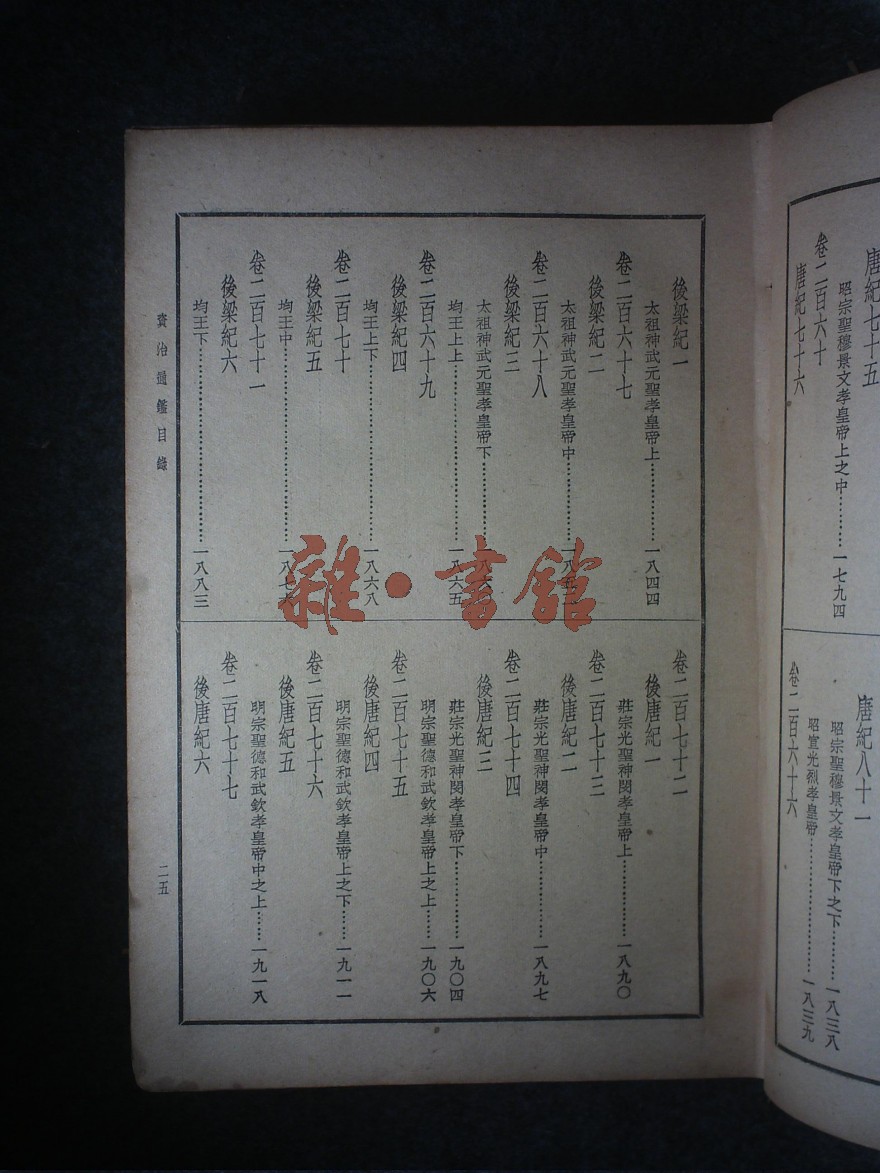 唐紀七十五
昭宗聖穆景文孝皇帝上之中………一七九四
卷二百六十
唐紀七十六
唐紀八十一
昭宗聖穆景文孝皇帝下之下………一八三八
昭宣光烈孝皇帝………一八三九
卷二百六十六
後梁紀一
太祖神武元聖孝皇帝上………一八四四
卷二百六十七
後梁紀二
太祖神武元聖孝皇帝中………一八五
卷二百六十八
後梁紀三
太祖神武元聖孝皇帝下
均王上上………一八六五
卷二百六十九
後梁紀四
均王上下………一八六八
卷二百七十
後梁紀五
均王中………一八七
卷二百七十一
後梁紀六
均王下………一八八三
卷二百七十二
後唐紀一
莊宗光聖神閔孝皇帝上………一八九〇
卷二百七十三
後唐紀二
莊宗光聖神閔孝皇帝中………一八九七
卷二百七十四
後唐紀三
莊宗光聖神閔孝皇帝下………一九〇四
明宗聖德和武欽孝皇帝上之上……一九〇六
卷二百七十五
後唐紀四
明宗聖德和武欽孝皇帝上之下……一九一一
卷二百七十六
後唐紀五
明宗聖德和武欽孝皇帝中之上……一九一八
卷二百七十七
後唐紀六
資治通鑑目錄
二五
雜·書館